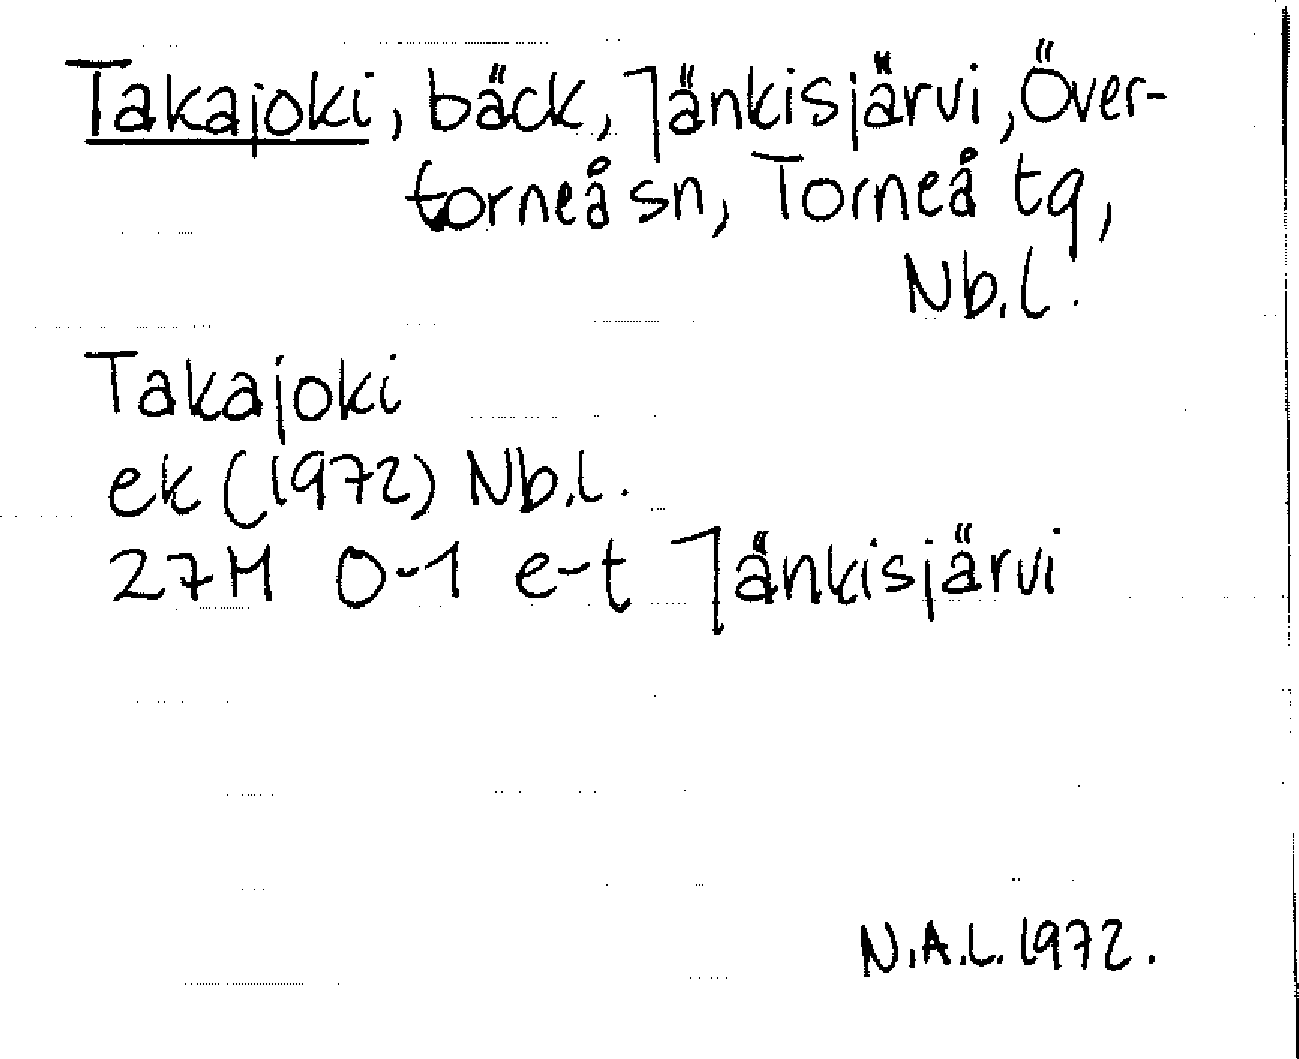 Takajoki, bäck, Jänkisjärvi, Över-
torneå sn, Torneå tg,
Nb.l.
Takajoki
ek (1972) Nb.l.
27M 0-1 e-t Jänkisjärvi
N.A.L. 1972.